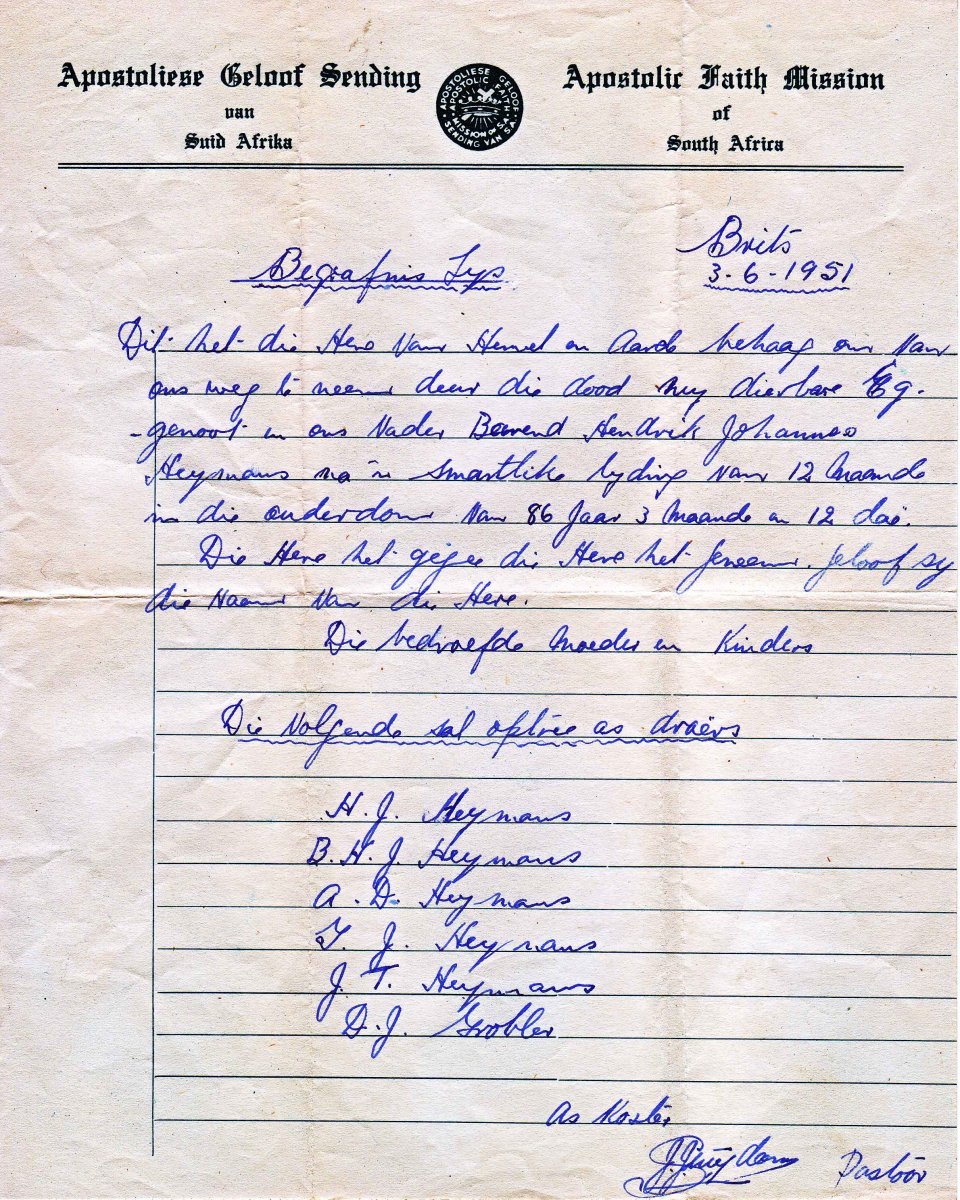 Apostoliese Geloof Sending
van
Suid Afrika
APOSTOLIESE GELOOF SENDING VAN S.A.
APOSTOLIC FAITH MISSION OF S.A.
Apostolic Faith Mission
of
South Africa
Brits
3-6-1951
Begrafnis Lys
Dit het die Here van Hemel en Aarde behaag om van
ons weg te neem deur die dood my dierbare Eg-
-genoot en ons Vader Barend Hendrik Johannes
Heymans na 'n smartlike lyding van 12 Maande
in die ouderdom van 86 Jaar 3 Maande en 12 daë.
Die Here het gegee die Here het geneem. geloof sy
die Naam van die Here.
Die bedroefde Moeder en Kinders
Die Volgende sal optree as draërs
H. J. Heymans
B. H. J Heymans
A. D. Heymans
J. Heymans
J. T. Heymans
D. J. Grobler
As Koster
Pastoor